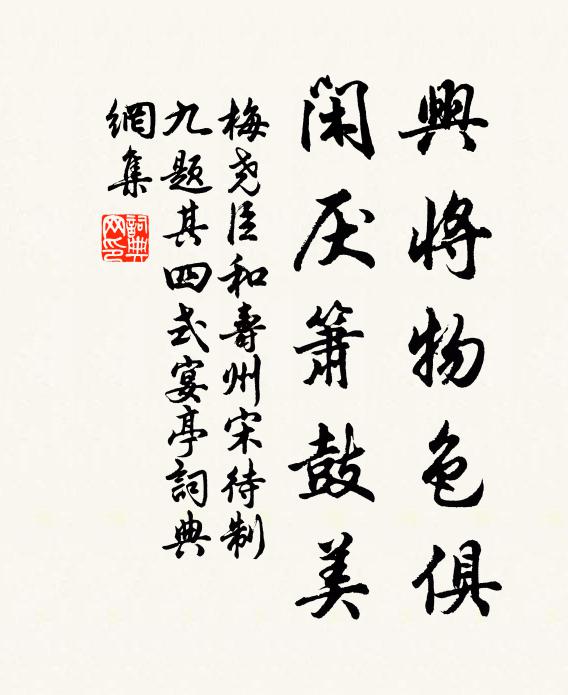 興將物色俱
閑厌簫鼓美
梅尧臣和壽州宋待制
九题其四式宴亭詞典
網集
詞典网印